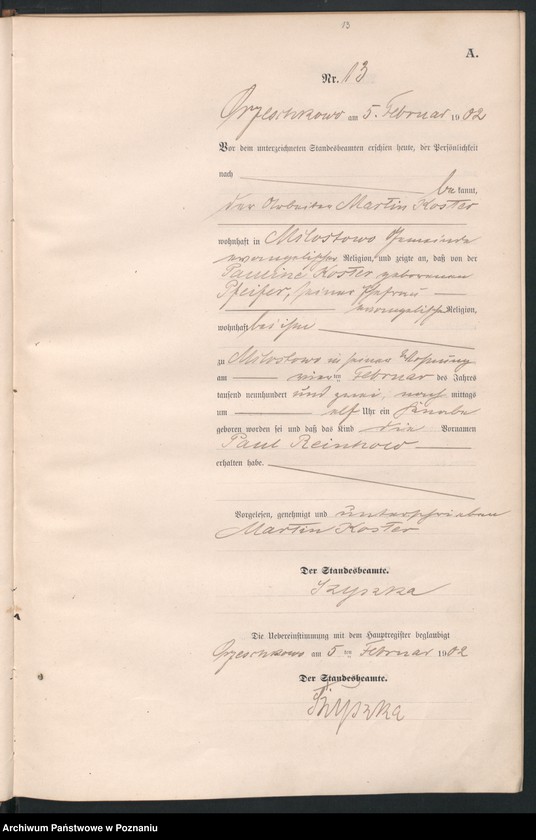 13
A.
Nr. 13
Grzeschkowo am 5. Februar 1902
Vor dem unterzeichneten Standesbeamten erschien heute, der Persönlichkeit
nach
be kannt,
der Arbeiter Martin Koster
wohnhaft in Milostowo Gemeinde
evangelischer Religion, und zeigte an, daß von der
Pauline Koster geborenen
Pfeifer, seiner Ehefrau
evangelischer Religion,
wohnhaft bei ihm
zu Milostowo in seiner Wohnung
am vier ten Februar des Jahres
tausend neunhundert und zwei, nach mittags
um elf Uhr ein Knabe
geboren worden sei und daß das Kind die Vornamen
Paul
erhalten habe.
Vorgelesen, genehmigt und unterschrieben
Martin Koster
Der Standesbeamte.
Szyszka
Die Uebereinstimmung mit dem Hauptregister beglaubigt
Grzeschkowo am 5 ten Februar 1902
Der Standesbeamte.
Szyszka
Archiwum Państwowe w Poznaniu